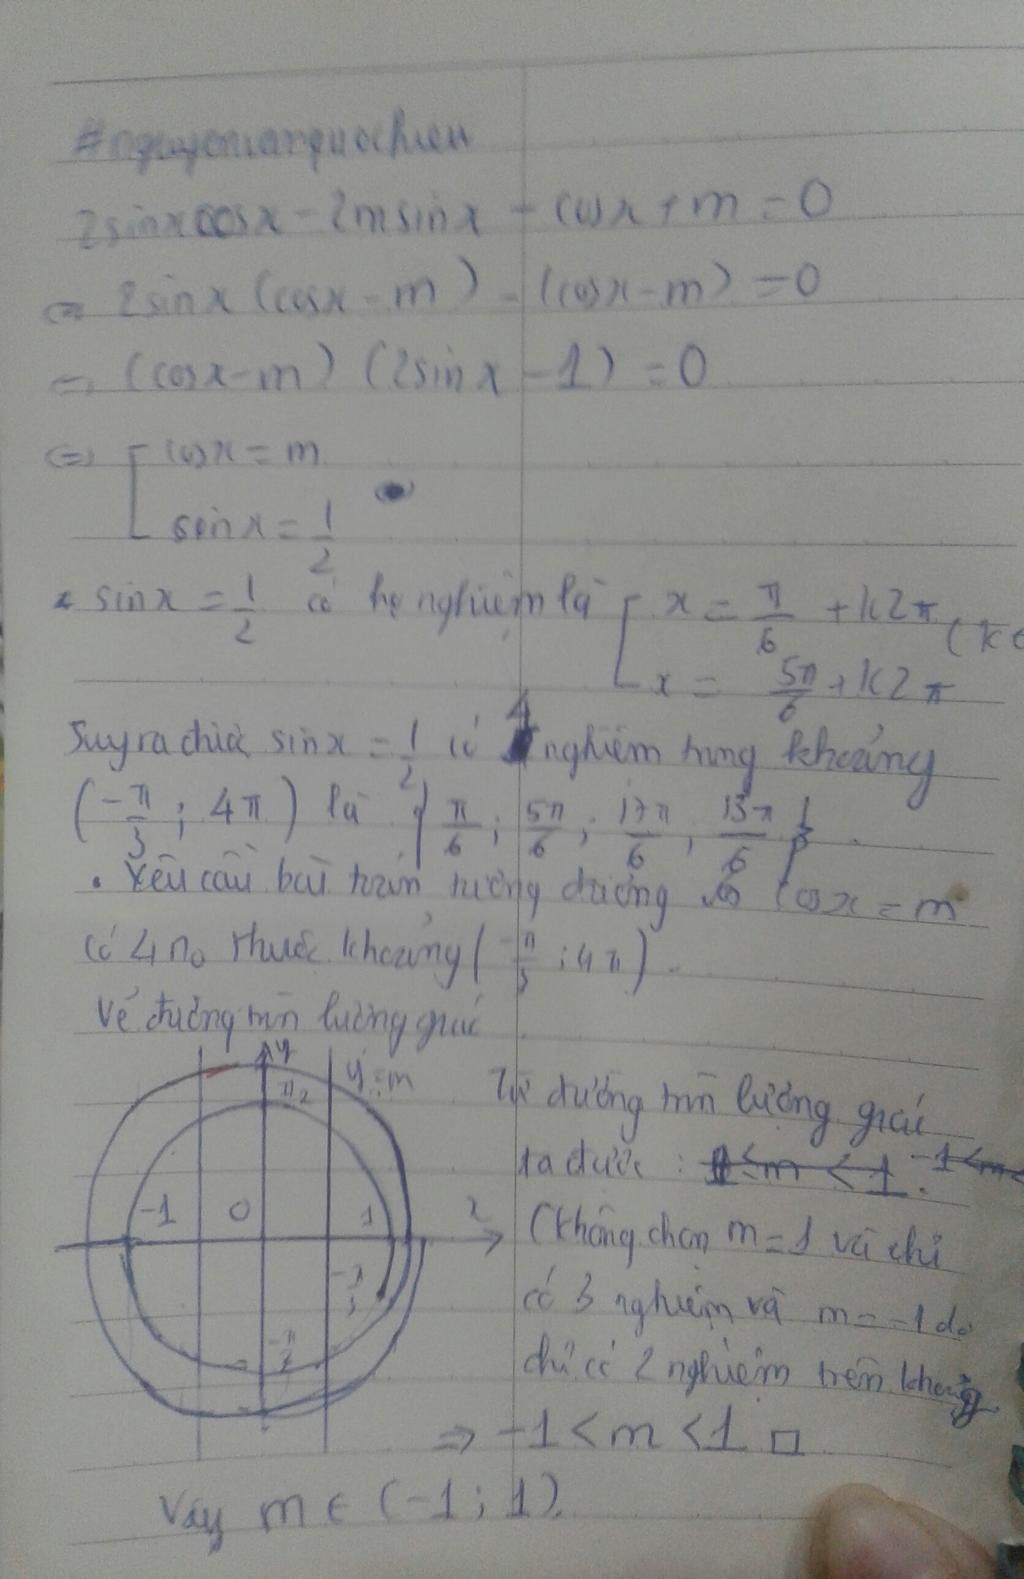 2sinxcosx - 2msinx - cosx + m = 0
⇔ 2sinx (cosx - m) - (cosx - m) = 0
⇔ (cosx - m) (2sinx - 1) = 0
⇔ [ cosx = m
sinx = 1/2
* sinx = 1/2 có họ nghiệm là [ x = π/6 + k2π (k∈
x = 5π/6 + k2π
Suy ra được sinx = 1/2 có 4 nghiệm trong khoảng
(-π/3 ; 4π) là { π/6 ; 5π/6 ; 17π/6 , 13π/6 }.
• Yêu cầu bài toán tương đương cosx = m
có 4 no thuộc khoảng (-π/3 ; 4π).
Vẽ đường tròn lượng giác
y
y = m
π/2
-1 0 1 x
-π/3
-π/2
Từ đường tròn lượng giác
ta được :
(không chọn m = 1 vì chỉ
có 3 nghiệm và m = -1 do
chỉ có 2 nghiệm trên khoảng
⇒ -1 < m < 1 □
Vậy m ∈ (-1 ; 1).